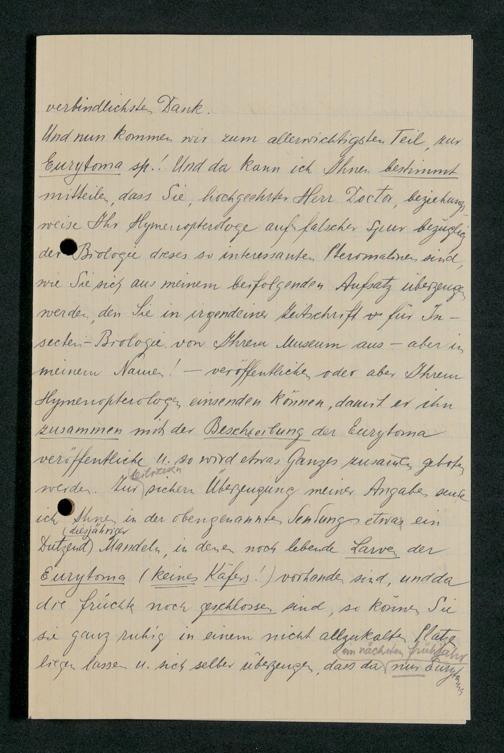 verbindlichsten Dank.
Und nun kommen wir zum allerwichtigsten Teil, zur
Eurytoma sp.! Und da kann ich Ihnen bestimmt
mitteilen, dass Sie, hochgeehrter Herr Doctor, beziehungs
weise Ihr Hymenopterologe auf falscher Spur bezüglich
der Biologie dieses so interessanten Pteromalinen sind,
wie Sie sich aus meinem beifolgenden Aufsatz überzeugen
werden, den Sie in irgendeiner Zeitschrift für In-
secten-Biologie von Ihrem Museum aus - aber in
meinem Namen! - veröffentlichen oder aber Ihrem
Hymenopterologen einsenden können, damit er ihn
zusammen mit der Beschreibung der Eurytoma
veröffentliche u. so wird etwas Ganzes zusammen geboten
werden. Zur sichern Überzeugung meiner Angaben sende
ich Ihnen in der obengenannten Sendung etwa ein
(diesjähriger
Dutzend) Mandeln, in denen noch lebende Larven der
Eurytoma (keine Käfer!) vorhanden sind, und da
die Früchte noch geschlossen sind, so können Sie
sie ganz ruhig in einem nicht allzukalten Platz
im nächsten Frühjahr
liegen lassen u. sich selber überzeugen, dass da nur Eurytoma